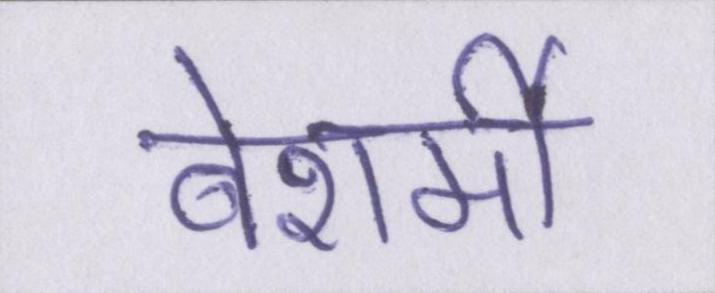 बेशर्मी